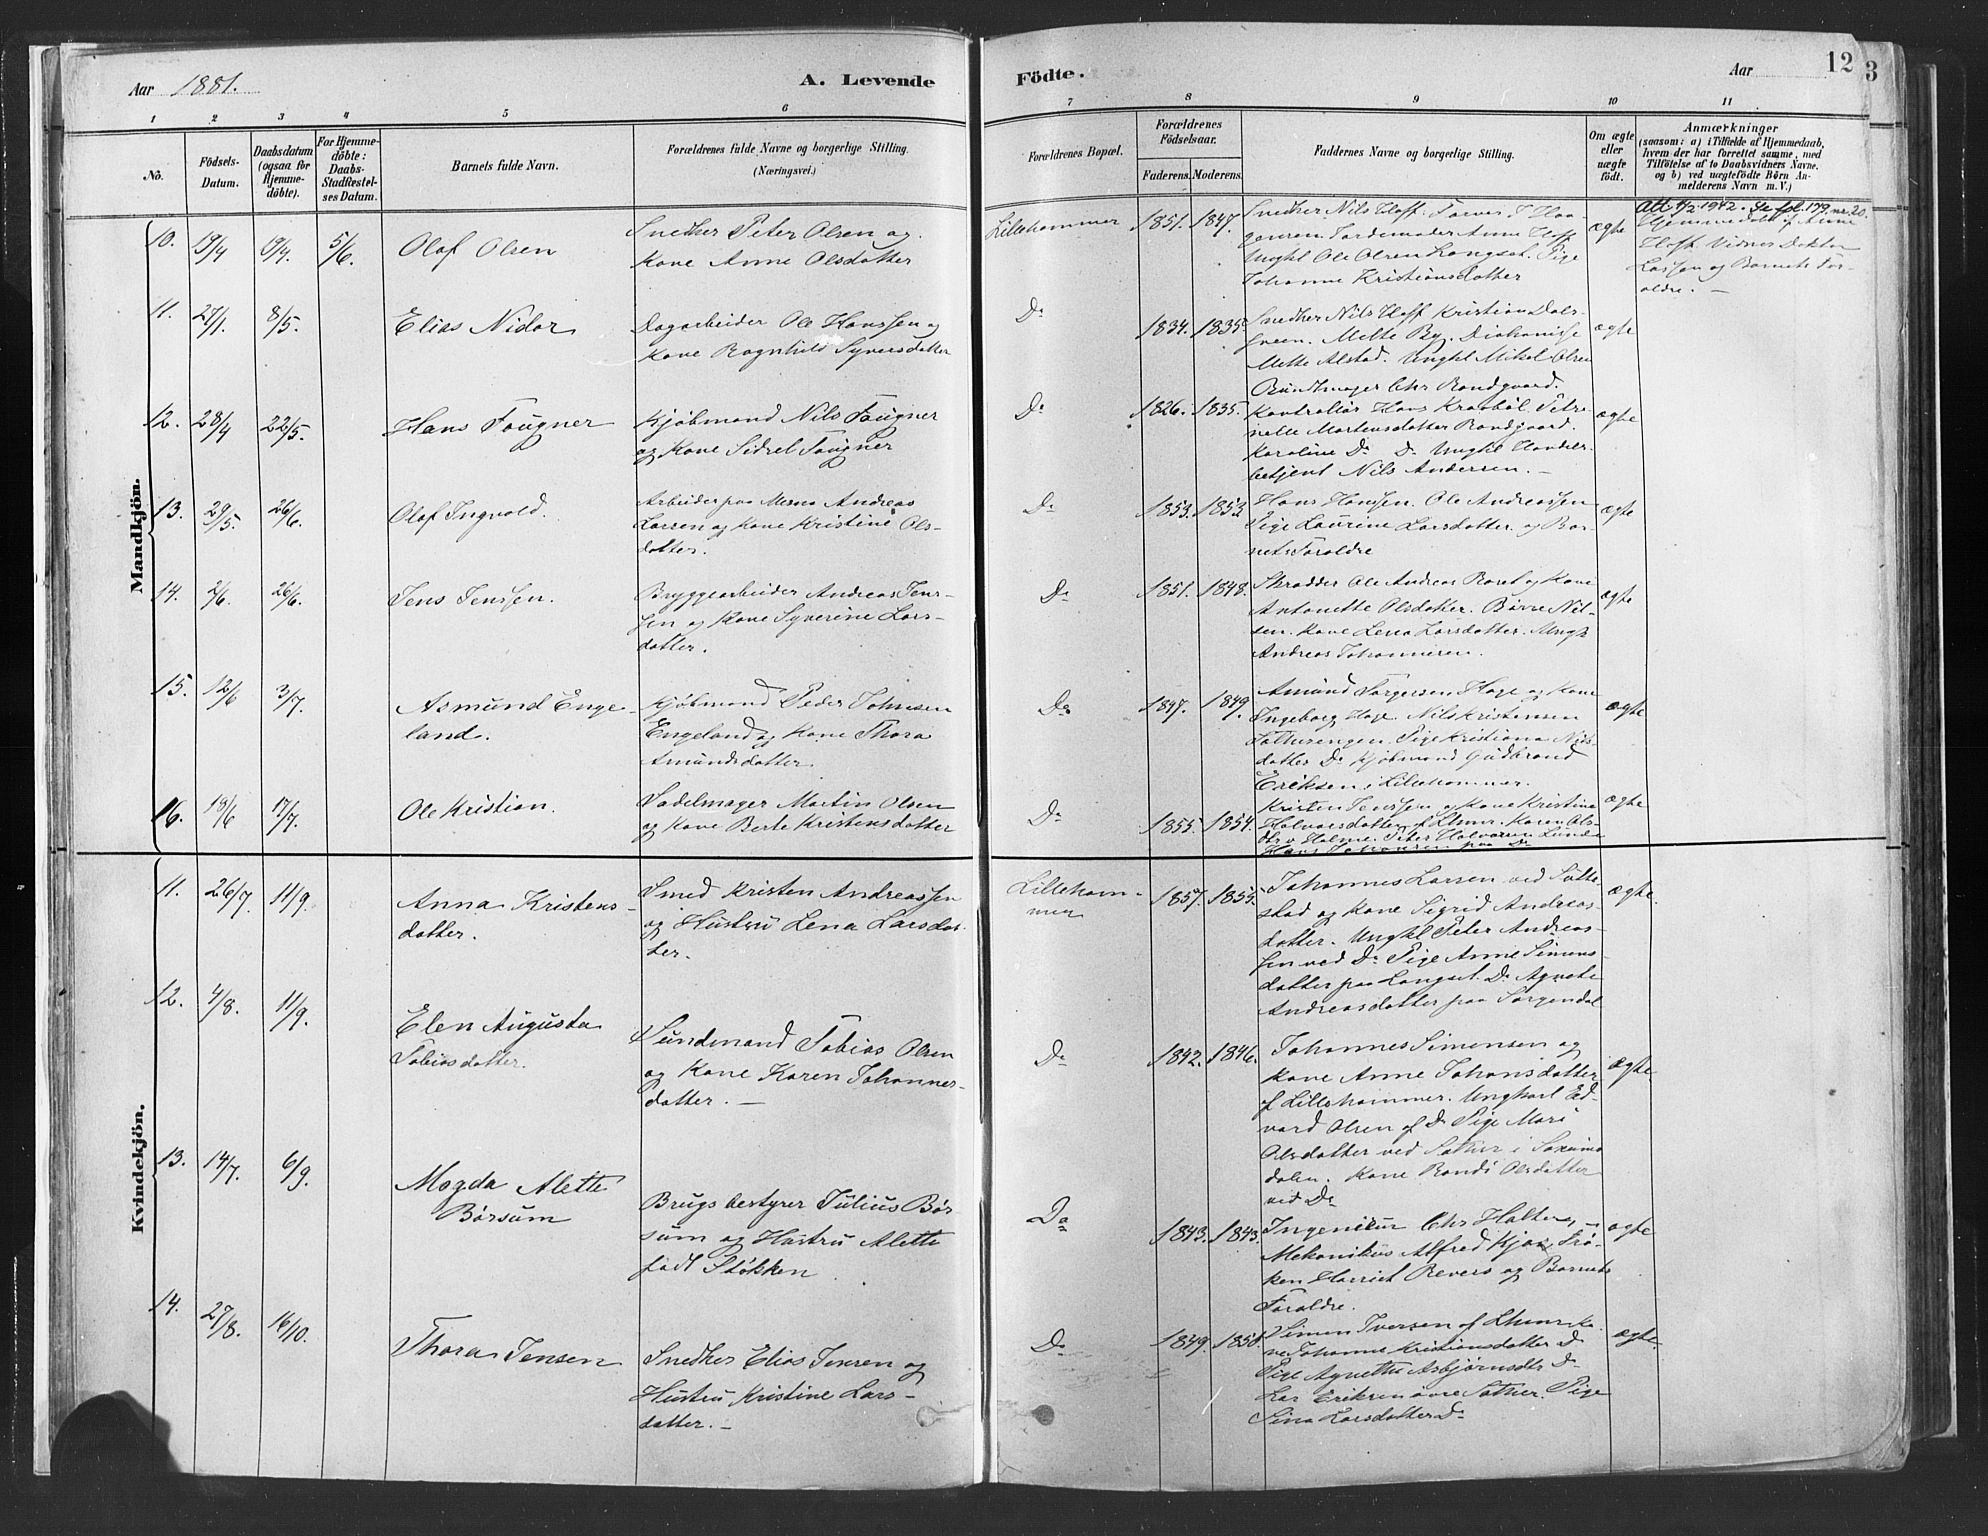 Aar 1881.
A. Levende
Födte.
Aar
12
3
1 2 3 4 5 6 7 8 9 10 11
No.
Födsels-Datum.
Daabsdatum (ogsaa for Hjemme-döbte).
For Hjemme-döbte: Daabs-Stadfæstel-ses Datum.
Barnets fulde Navn.
Forældrenes fulde Navne og borgerlige Stilling.
(Næringsvei.)
Forældrenes Bopæl.
Forældrenes Födselsaar.
Faderens. Moderens.
Faddernes Navne og borgerlige Stilling.
Om ægte eller uægte födt.
Anmærkninger
(saasom: a) i Tilfælde af Hjemmedaab, hvem der har forrettet samme, med Tilföielse af to Daabsvidners Navne, og b) ved uægtefödte Börn Anmelderens Navn m. V.)
Mandkjön.
10. 19/4 9/4. 5/6. Olaf Olsen
Snedker Peter Olsen og
Kone Anne Olsdatter
Lillehammer 1851. 1847.
Snedker Nils Hoff.
Jordemoder Anne Hoff
Ungkl Ole Olsen Langset. Pige
Johanne Kristiansdatter
ægte
Att 4/2 1942.
Hoff. Vidner Doktor
Lassen og Barnets For-
ældre. —
11. 27/1. 8/5. Elias Nidar
Dagarbeider Ole Hanssen og
Kone Ragnhild Syversdatter
Do 1834. 1835.
Snedker Nils Hoff Kristian Dals-
green. Mette By. Diakonisse
Mette Alstad. Ungkl Mikal Olsen
ægte
12. 28/4 22/5. Hans Fougner
Kjøbmand Nils Fougner
og Kone Sidsel Fougner
Do 1826. 1835.
Bundtmager Chr Randgaard.
Kontrollør Hans Kravbøl. Petre-
nelle Mortensdatter Randgaard.
Karoline Do Do Ungkl Handels-
betjent Nils Andersen. —
ægte
13. 29/5 26/6. Olaf Ingvald.
Arbeider paa Mesna Andreas
Larsen og Kone Kristine Ols-
datter.
Do 1853. 1853
Hans Hanssen. Ole Andreassen
Pige Laurine Larsdatter og Bar-
nets Forældre
ægte
14. 2/6. 26/6. Jens Jenssen.
Bryggearbeider Andreas Jens-
sen og Kone Syverine Lars-
datter.
Do 1851. 1848.
Skrædder Ole Andreas Roset og Kone
Antonette Olsdatter. Børre Nil-
sen. Kone Lena Larsdatter. Ungk
Andreas Johannesen.
ægte
15. 12/6 3/7. Asmund Enge-
land.
Kjøbmand Peder Johnsen
Engeland og Kone Thora
Amundsdatter.
Do 1847. 1849.
Amund Torgersen Hage og Kone
Ingeborg Hage. Nils Kristensen
Pige Kristiana Nils-
datter Do Kjøbmand Gudbrand
Eriksen i Lillehammer.
ægte
16. 18/6 17/7. Ole Kristian.
Sadelmager Martin Olsen
og Kone Berte Kristensdatter
Do 1855. 1854.
Kristen Jenssen og Kone Kristine
Halvorsdatter af Lhmr. Karen Ols-
dtr v Holme. Peter Halvorsen Lunde
Hans Johansen paa Do
ægte
Kvindekjön.
11. 26/7. 11/9. Anna Kristens-
datter.
Smed Kristen Andreassen
og Hustru Lena Larsdat-
ter.
Lilleham-
mer 1857. 1855.
Johannes Larsen ved Sætte-
stad og Kone Sigrid Andreas-
datter. Ungkl Peter Andreas-
sen ved Do Pige Anne Simens-
datter paa Langset. Do Agnete
Andreasdatter paa Sorgendal
ægte.
12. 4/8. 11/9. Elen Augusta
Tobiasdatter.
Sundmand Tobias Olsen
og Kone Karen Johannes-
datter. —
Do 1842. 1846.
Johannes Simensen og
Kone Anne Johansdatter
af Lillehammer. Ungkarl Ed-
vard Olsen af Do Pige Mari
Olsdatter ved Sæther i Saxum-
dalen. Kone Randi Olsdatter
ved Do
ægte
13. 14/7. 6/9. Magda Alette
Børsum
Brugsbestyrer Julius Bør-
sum og Hustru Alette
født Støkken
Do 1843. 1843.
Ingeniør Chr Holter, —
Mekanikus Alfred Kjær, Frø-
ken Harriet Revers og Barnets
Forældre.
ægte
14. 27/8. 16/10. Thora Jensen
Snedker Elias Jensen og
Hustru Kristine Lars-
datter. —
Do 1849. 1858.
Simen Iversen af Lhmr Ko-
ne Johanne Kristiansdatter Do
Pige Agnethe Asbjørnsdtr Do
Lar Eriksen øvre Sæther. Pige
Sina Larsdatter Do
ægte.